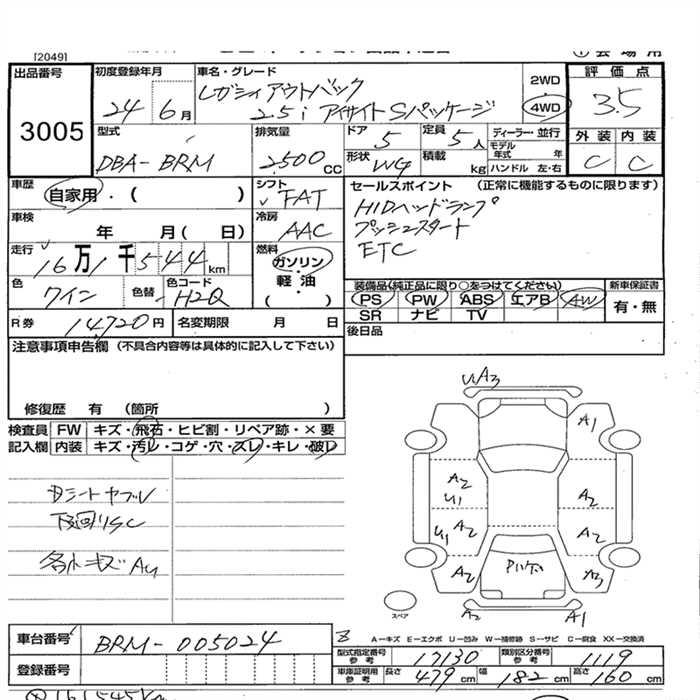 [2049]
出品番号 3005
初度登録年月 24年 6月
車名・グレード レガシィアウトバック
2.5i アイサイトSパッケージ
2WD
4WD
評価点 3.5
外装 内装
C C
型式 DBA-BRM
排気量 2500 CC
ドア 5
定員 5人
形状 WG
積載 kg
ディーラー・並行
モデル年式 年
ハンドル 左・右
車歴 自家用・( )
シフト FAT
セールスポイント (正常に機能するものに限ります)
HIDヘッドランプ
プッシュスタート
ETC
車検 年 月( 日)
冷房 AAC
走行 16万1千544km
燃料 ガソリン・軽油・( )
色 ワイン
色替
色コード H2Q
装備品(純正品に限り○をつけてください)
PS PW ABS エアB AW
SR ナビ TV
新車保証書
有・無
R券 14,720円
名変期限 月 日
後日品
注意事項申告欄 (不具合内容等は具体的に記入して下さい)
修復歴 有 (箇所 )
検査員記入欄
FW キズ・飛石・ヒビ割・リペア跡・×要
内装 キズ・汚レ・コゲ・穴・スレ・キレ・破レ
Dシートヤブレ
下回りSC
各小キズAU
UA3
A1
A2
U1
A2
U1 A2
A2
A2
A3
A2
A1
スペア
A－キズ E－エクボ U－凹み W－補修跡 S－サビ C－腐食 XX－交換済
車台番号 BRM-005024
登録番号
型式指定番号 参考 17130
類別区分番号 参考 1119
車庫証明用 参考 長さ 479cm 幅 182cm 高さ 160cm